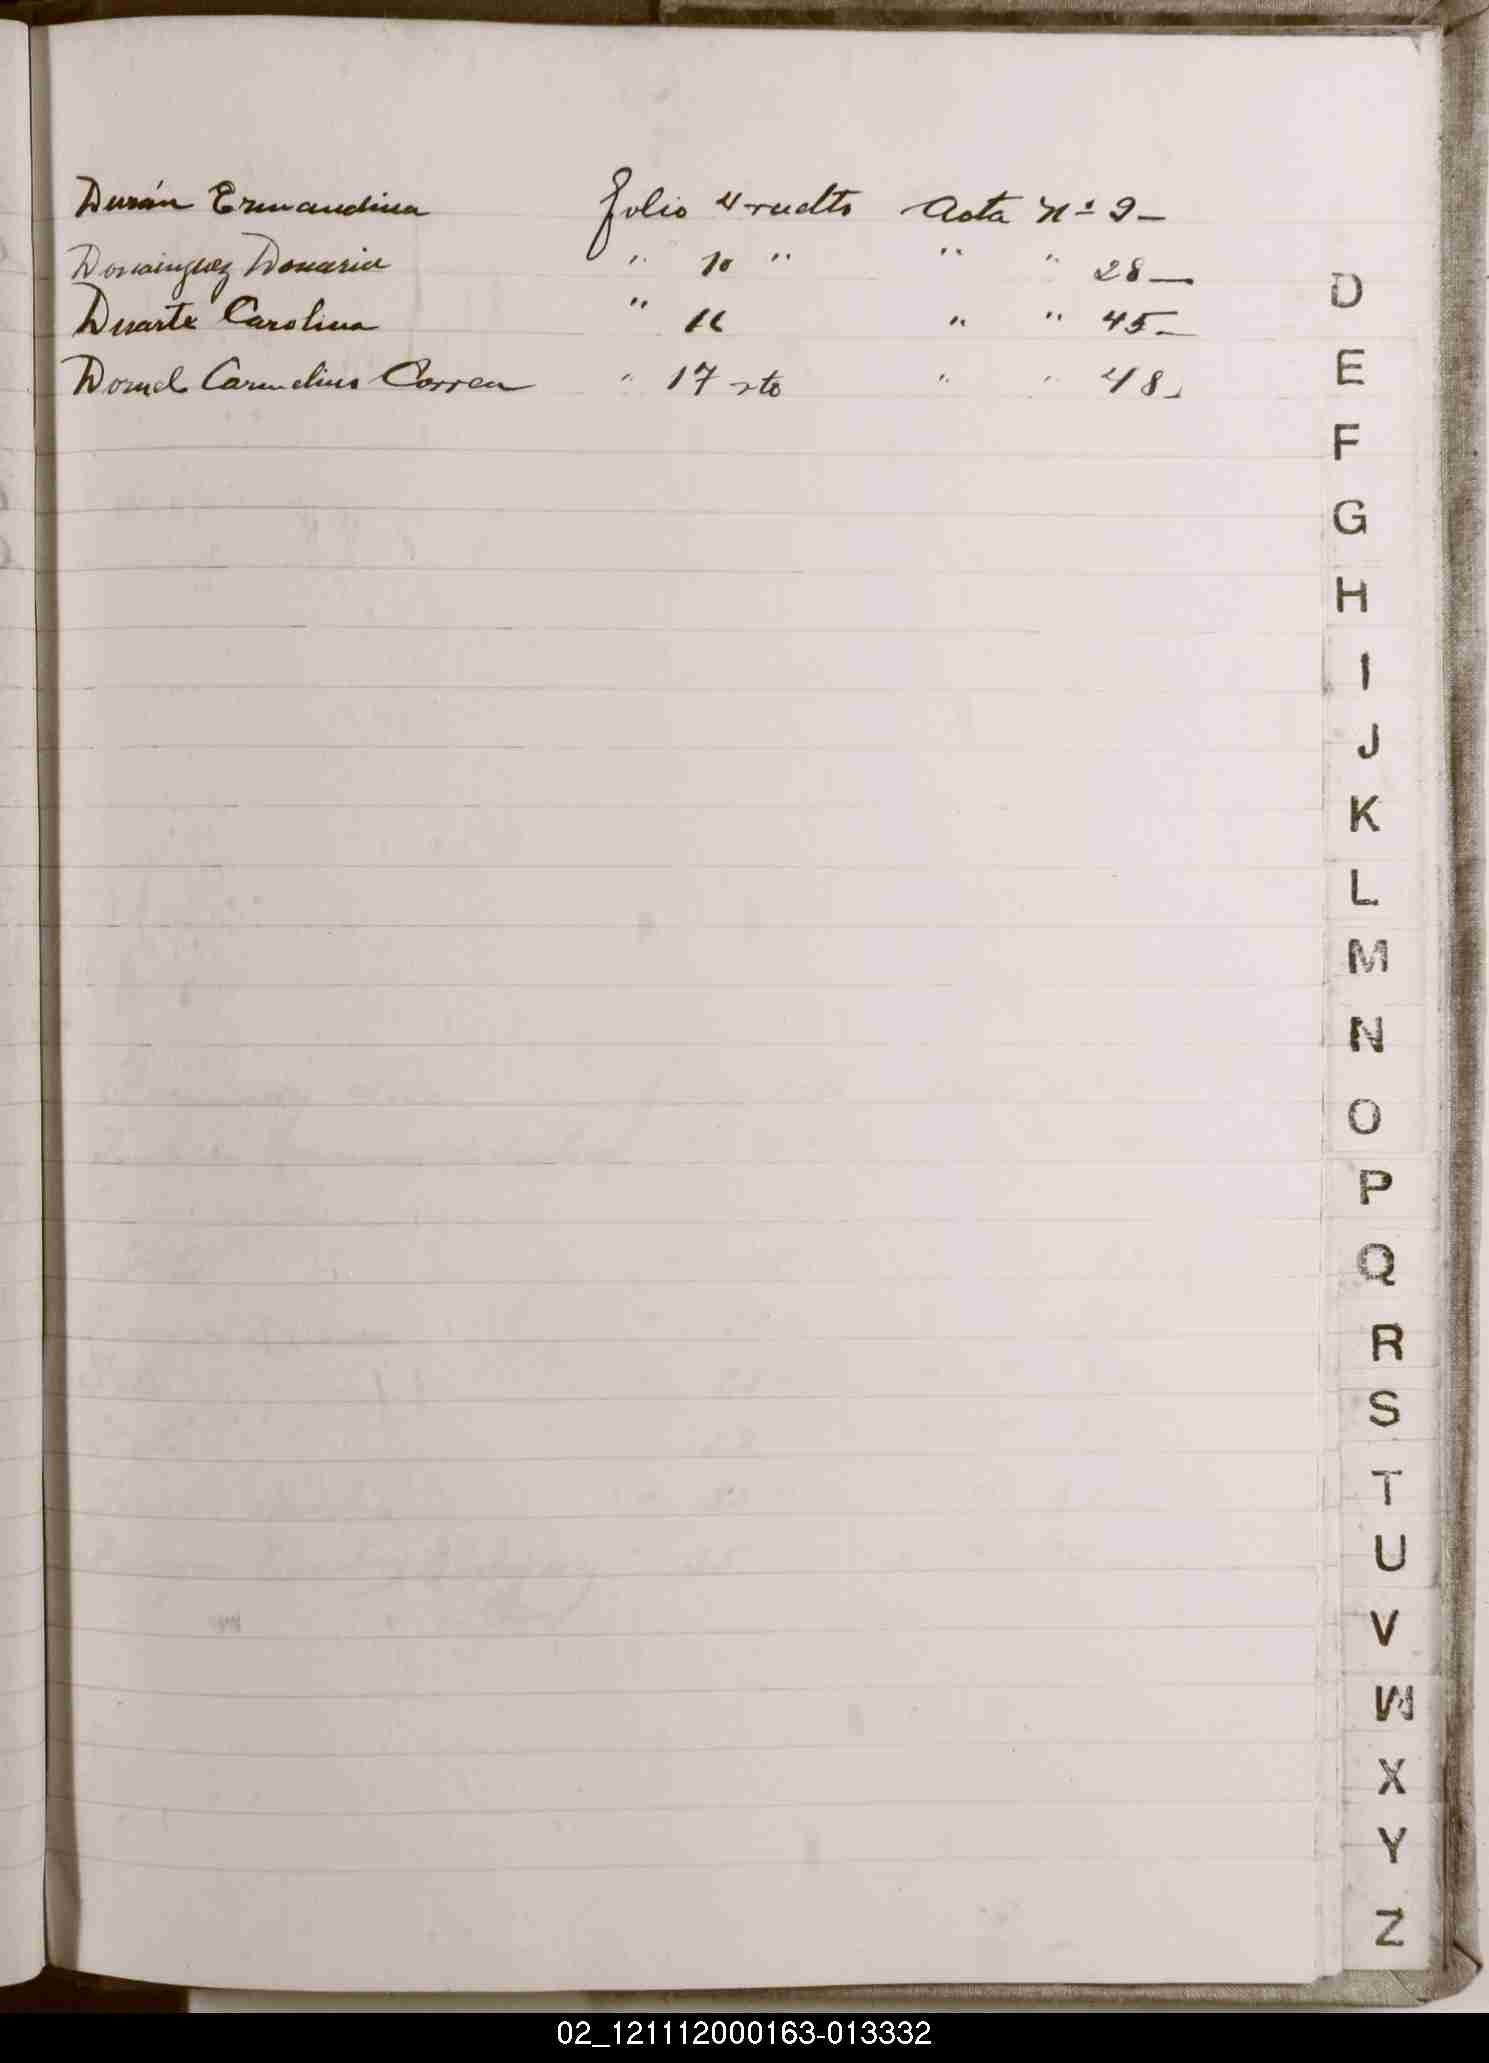 Durán Ermandina folio 4 vuelto Acta Nº 9-
Dominguez Donaria " 10 " " " 28-
Duarte Carolina " 16 " " 45-
Dornel Carmelino Correa " 17 vto " " 48-
D
E
F
G
H
I
J
K
L
M
N
O
P
Q
R
S
T
U
V
W
X
Y
Z
02_121112000163-013332